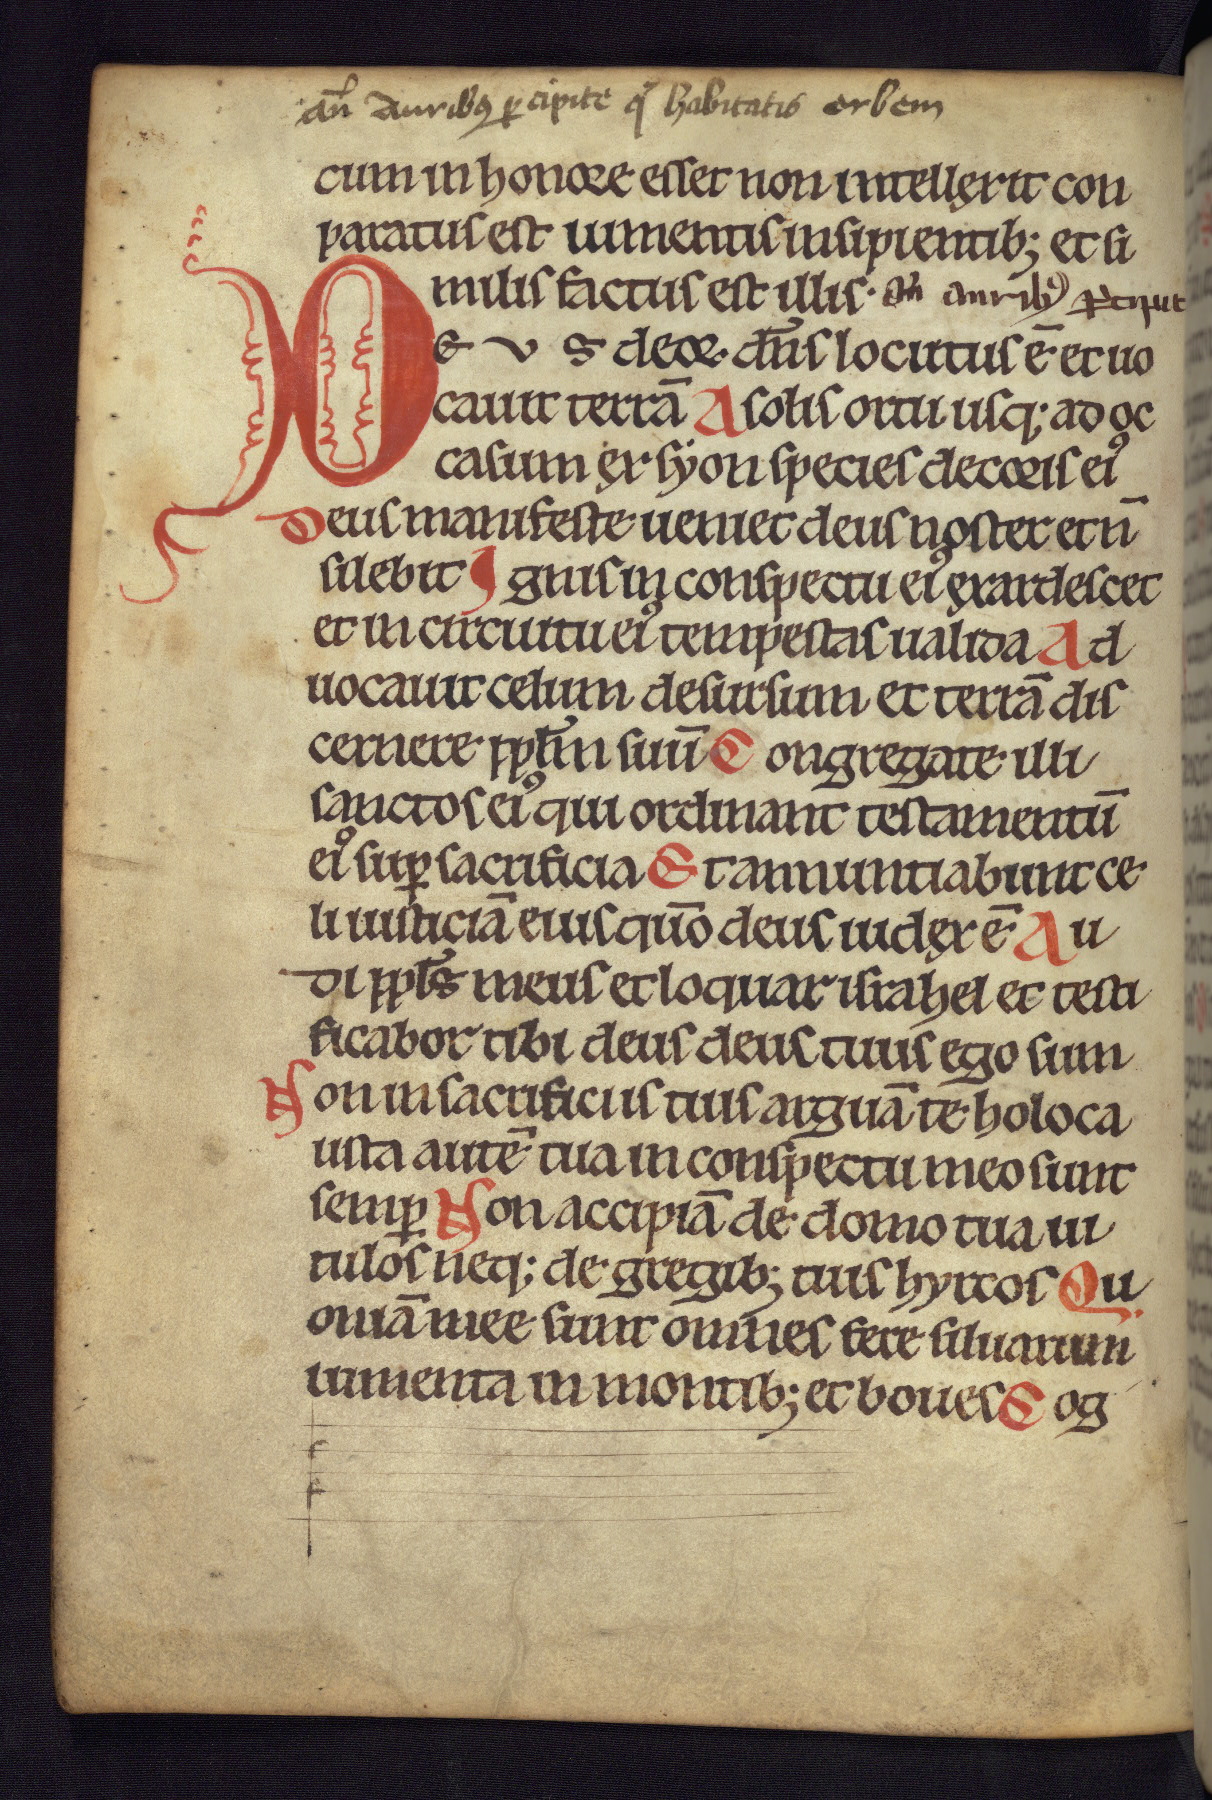 an̄ auribꝯ ꝑcipite q̄ habitatis orbem
cum in honore esset non intellęxit con
paratus est iumentis insipientib; et si
milis factus est illis· an̄ aurib⁊ ꝑcipit
DEUS deoꝝ dn̄s locutus ē et uo
cauit terrā A solis ortu usq; ad oc
casum ęx syon species decoris eiꝰ
Deus manifeste ueniet deus noster et n̄
silebit Ignis in conspectu eiꝰ ęxardescet
et in circuitu eiꝰ tempestas ualida Ad
uocauit celum desursum et terrā dis
cernere pplm̄ suū Congregate illi
sanctos eiꝰ qui ordinant testamentū
eiꝰ suꝑ sacrificia Et annuntiabunt ce
li iusticiā eius quō deus iudęx ē Au
di ppls̄ meus et loquar israhel et testi
ficabor tibi deus deus tuus ego sum
Non in sacrificiis tuis arguā te holoca
usta autē tua in conspectu meo sunt
semꝑ Non accipiā de domo tua ui
tulos neq; de gregib; tuis hyrcos Qu
oniā mee sunt omnes fere siluarum
iumenta in montib; et boues Cog